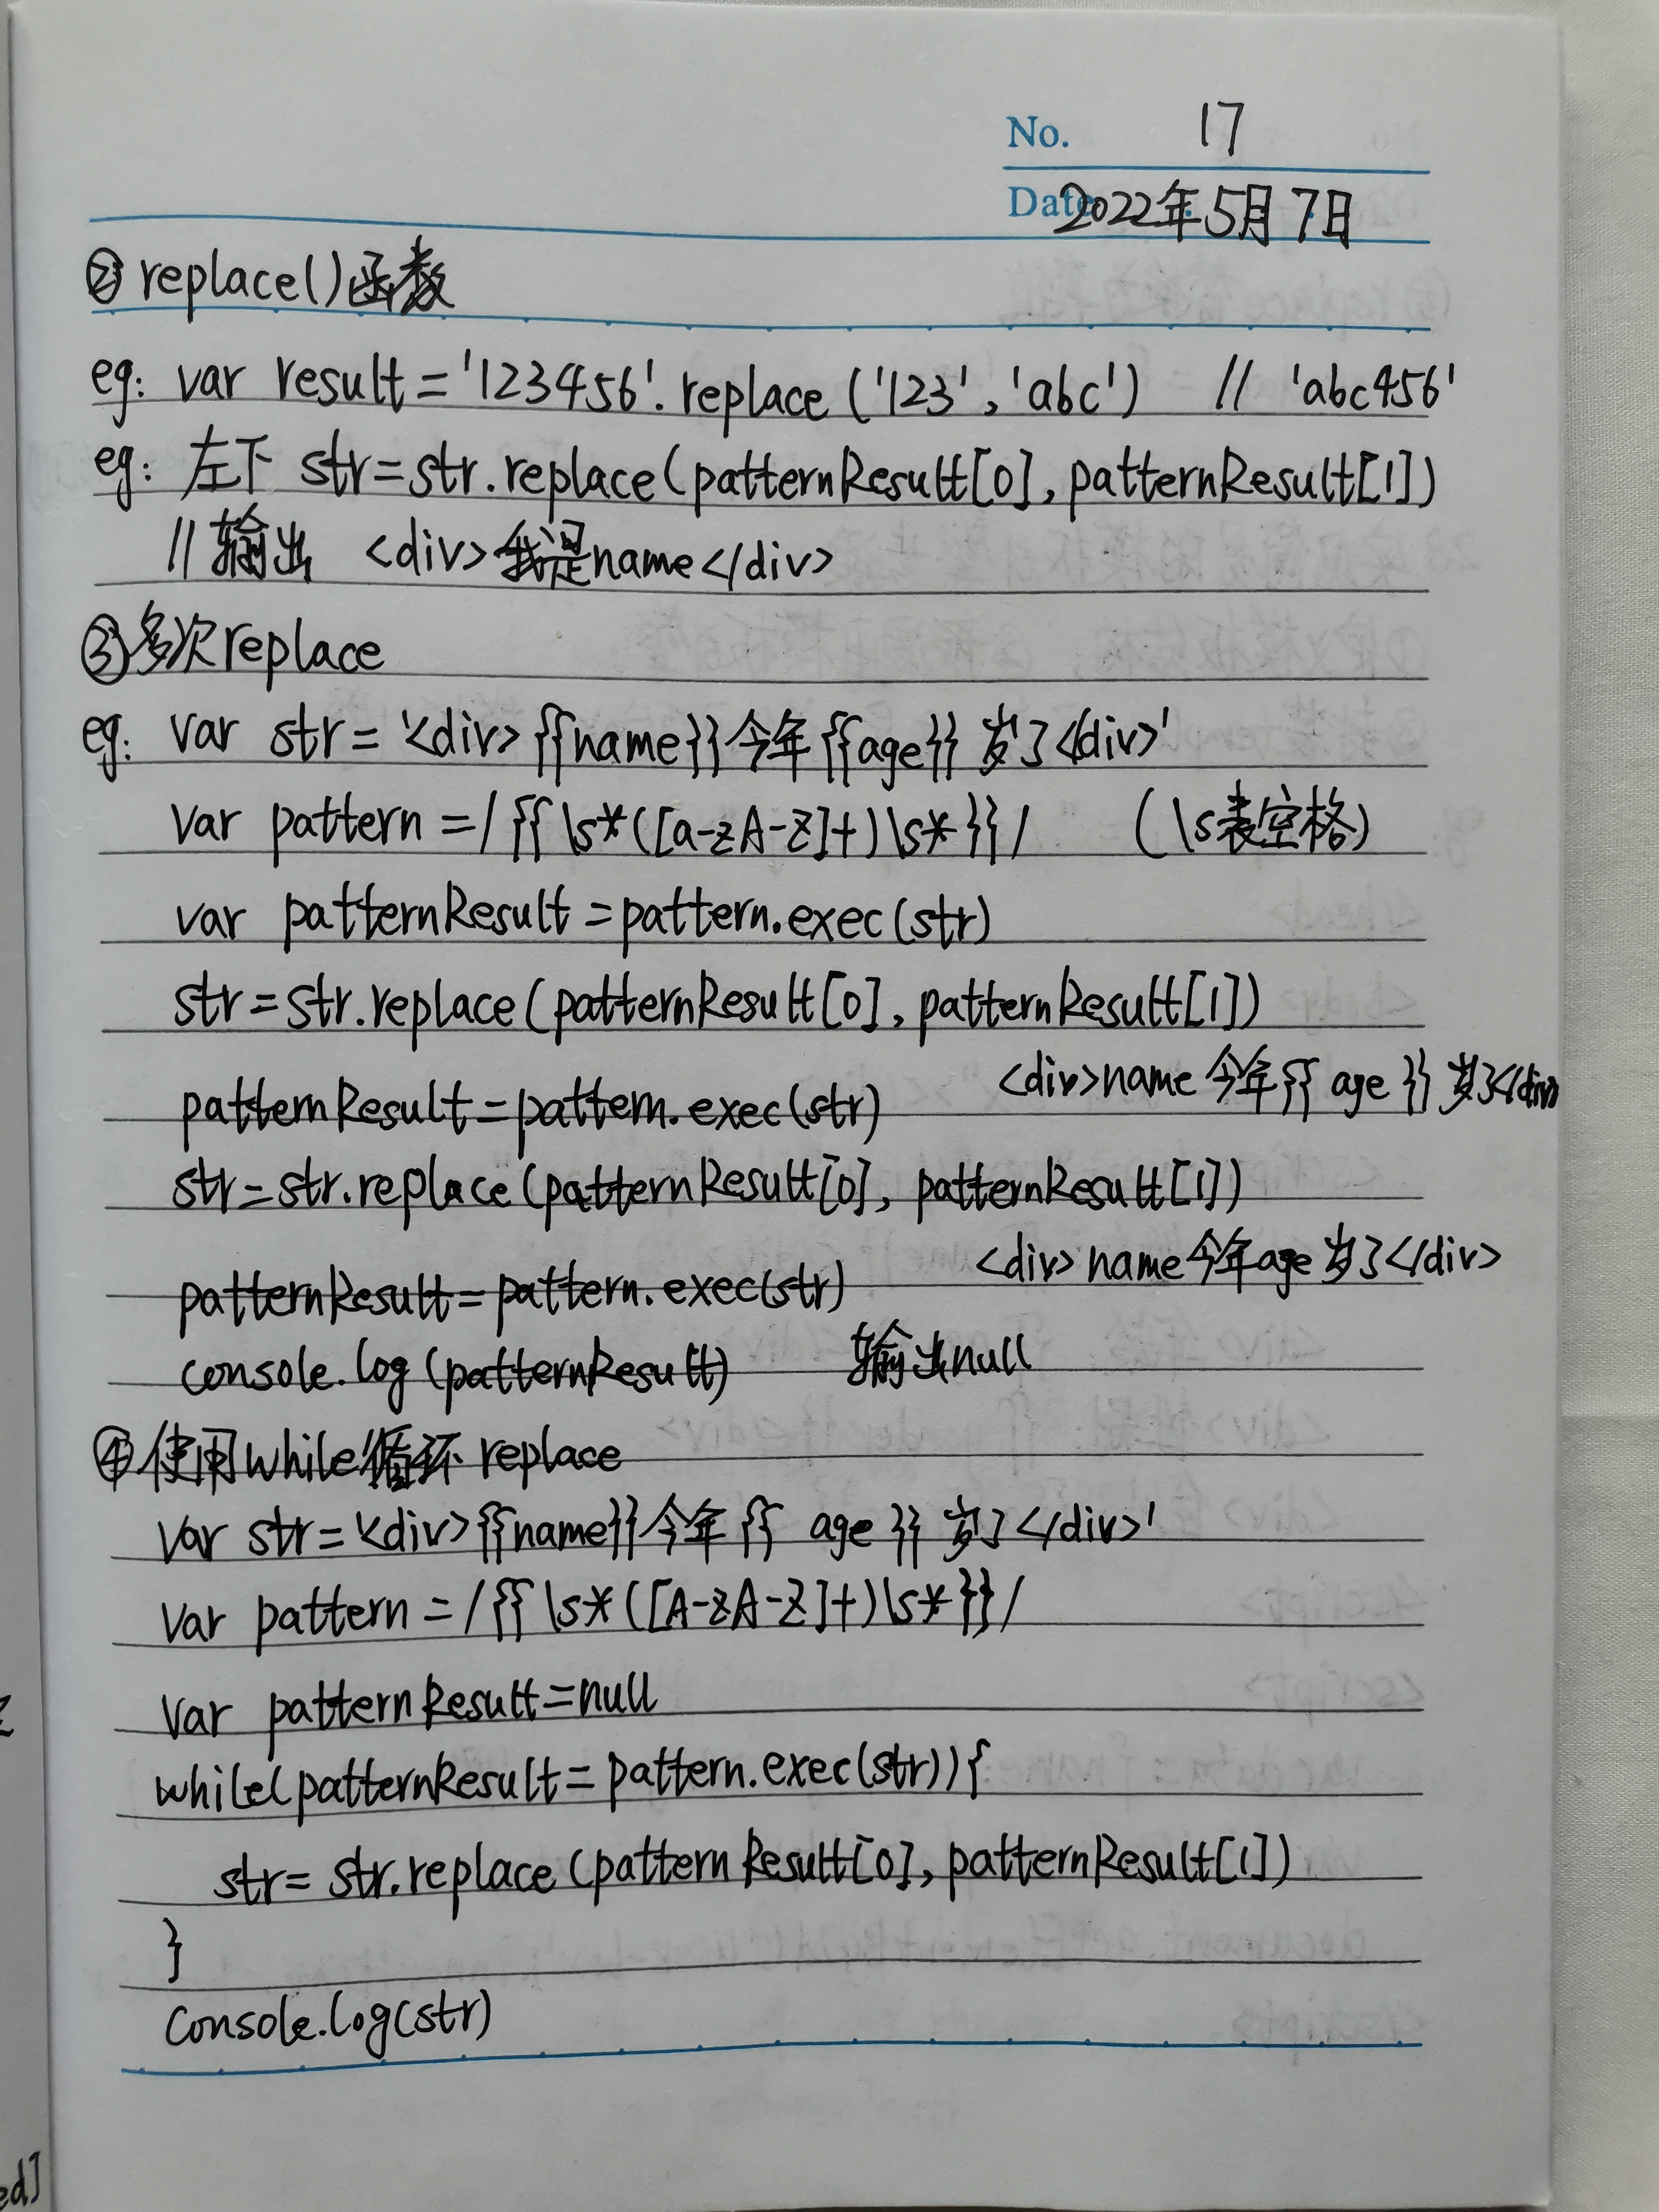 No. 17
Date 2022年5月7日
②replace()函数
eg: var result='123456'.replace('123','abc') // 'abc456'
eg: 左下 str=str.replace(patternResult[0],patternResult[1])
//输出 <div>我是name</div>
③多次replace
eg: var str='<div>{{name}}今年{{age}}岁了</div>'
var pattern=/{{\s*([a-zA-Z]+)\s*}}/ (\s表空格)
var patternResult=pattern.exec(str)
str=str.replace(patternResult[0],patternResult[1])
<div>name今年{{ age }}岁了</div>
patternResult=pattern.exec(str)
str=str.replace(patternResult[0],patternResult[1])
<div>name今年age岁了</div>
patternResult=pattern.exec(str)
console.log(patternResult) 输出null
④使用while循环replace
var str='<div>{{name}}今年{{ age }}岁了</div>'
var pattern=/{{\s*([A-zA-Z]+)\s*}}/
var patternResult=null
while(patternResult=pattern.exec(str)){
str=str.replace(patternResult[0],patternResult[1])
}
console.log(str)
ed]